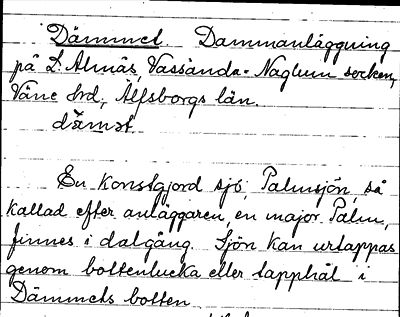 Dämmet Dammanläggning
på L. Almås, Vassända-Naglum socken,
Väne hrd, Älfsborgs län.
dämət
En konstgjord sjö, Palmsjön, så
kallad efter anläggaren, en major Palm,
finnes i dalgång. Sjön kan urtappas
genom bottenlucka eller tapphål i
Dämmets botten